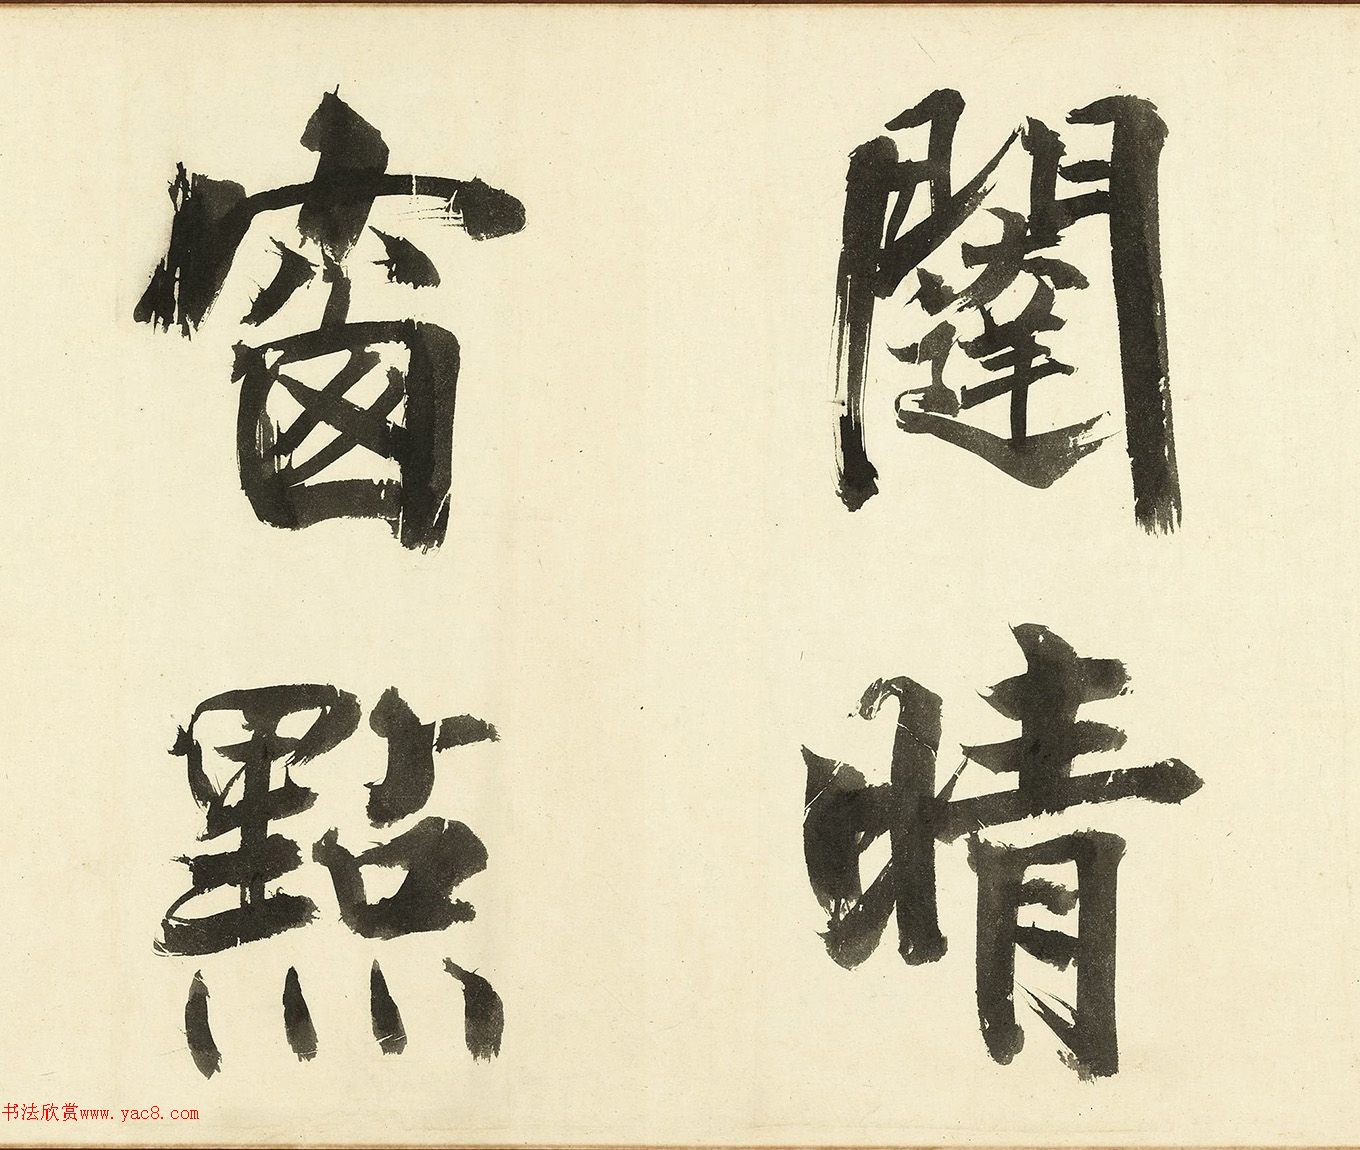 闥晴
窗點
书法欣赏www.yac8.com